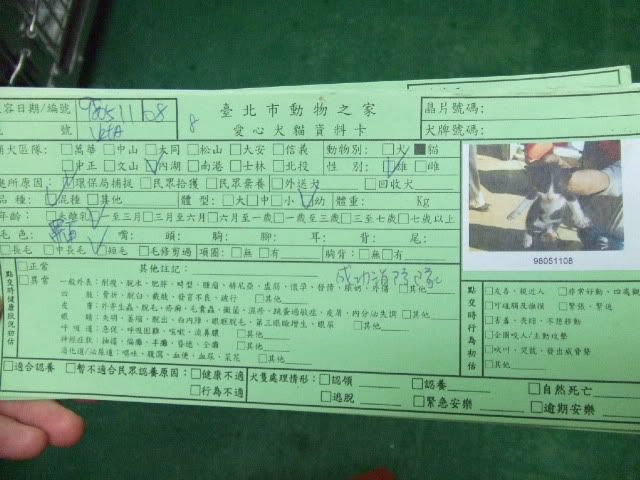 容日期/編號 98051108 臺北市動物之家 晶片號碼:
號 8 愛心犬貓資料卡 犬牌號碼:
捕犬區隊: □萬華 □中山 □大同 □松山 □大安 □信義 動物別: □犬 ■貓
□中正 □文山 ☑內湖 □南港 □士林 □北投 性別: ☑雄 □雌
處所原因: ☑環保局捕捉 □民眾拾獲 □民眾棄養 □外送犬 □回收犬
品種: ☑混種 □其他 體型: □大 □中 □小 ☑幼 體重: Kg
年齡: □未離乳 ☑一至三月 □三月至六月 □六月至一歲 □一歲至三歲 □三至七歲 □七歲以上
毛色: 嘴: 頭: 胸: 腳: 耳: 背: 尾:
□長毛 □中長毛 ☑短毛 □毛修剪過 項圈: □無 □有 胸背: □無 □有
98051108
點交時健康狀況初估 □正常 □異常
其他註記:
一般外表: 削瘦、脫水、肥胖、畸型、腫瘤、赫尼亞、虛弱、懷孕、發情、 □其他
四肢: 骨折、脫臼、截肢、發育不良、跛行 □其他
皮膚: 外寄生蟲、脫毛、疥癬、毛囊蟲、黴菌、濕疹、跳蚤過敏症、皮屑、內分泌失調 □其他
眼睛: 失明、萎縮、脫出、白內障、眼瞼脫毛、第三眼瞼增生、眼屎 □其他
呼吸道: 急促、呼吸困難、咳嗽、流鼻膿 □其他
神經症狀: 抽搐、偏癱、半癱、昏迷、全癱 □其他
消化道/泌尿道: 嘔吐、腹瀉、血便、血尿、菜花 □其他
點交時行為初估
□友善、親近人 □非常好動、四處觀
□可碰觸及撫摸 □緊張、緊迫
□害羞、畏縮、不想移動
□企圖咬人/主動攻擊
□吠叫、哭號、發出威脅聲
□其他
□適合認養 □暫不適合民眾認養原因: □健康不適 □行為不適
犬隻處理情形: □認領 □認養 □自然死亡
□逃脫 □緊急安樂 □逾期安樂